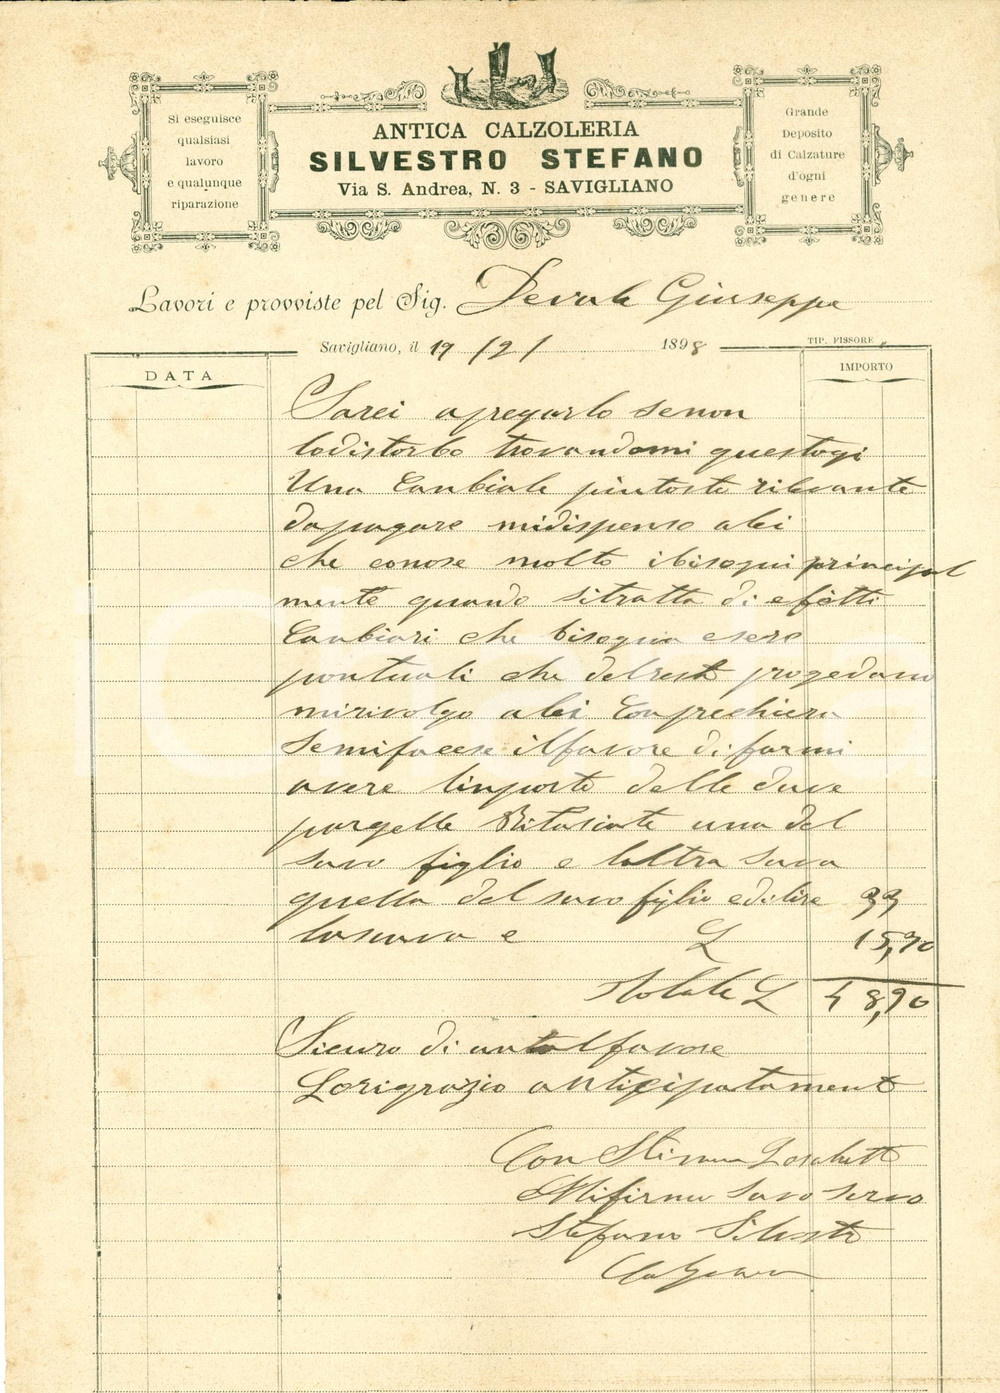 Si eseguisce
qualsiasi
lavoro
e qualunque
riparazione
ANTICA CALZOLERIA
SILVESTRO STEFANO
Via S. Andrea, N. 3 - SAVIGLIANO
Grande
Deposito
di Calzature
d'ogni
genere
Lavori e provviste pel Sig. Giuseppe
Savigliano, il 19/2/ 1898
TIP. FISSORE
DATA
IMPORTO
Sarei apregarlo senon
lodistorbo trovandomi questogi
Una Canbiale piutosto rilevante
dapagare midispenso alei
che conose molto ibisogni principal
mente quando sitratta di efetti
Canbiari che bisogna esere
pontuali che delresto
mirivolgo alei Conprechiera
Semifacese ilfavore di farmi
avere linporto delle due
pargelle una del
suvo figlio e laltra suva
quella del suvo figlio edilire 33
lasuva e L 15,90
totale L 48,90
Sicuro di untalfavore
Lorigrazio anticipatament
Con Stima
Mifirmo Suvo servo
Stefano Silvestro